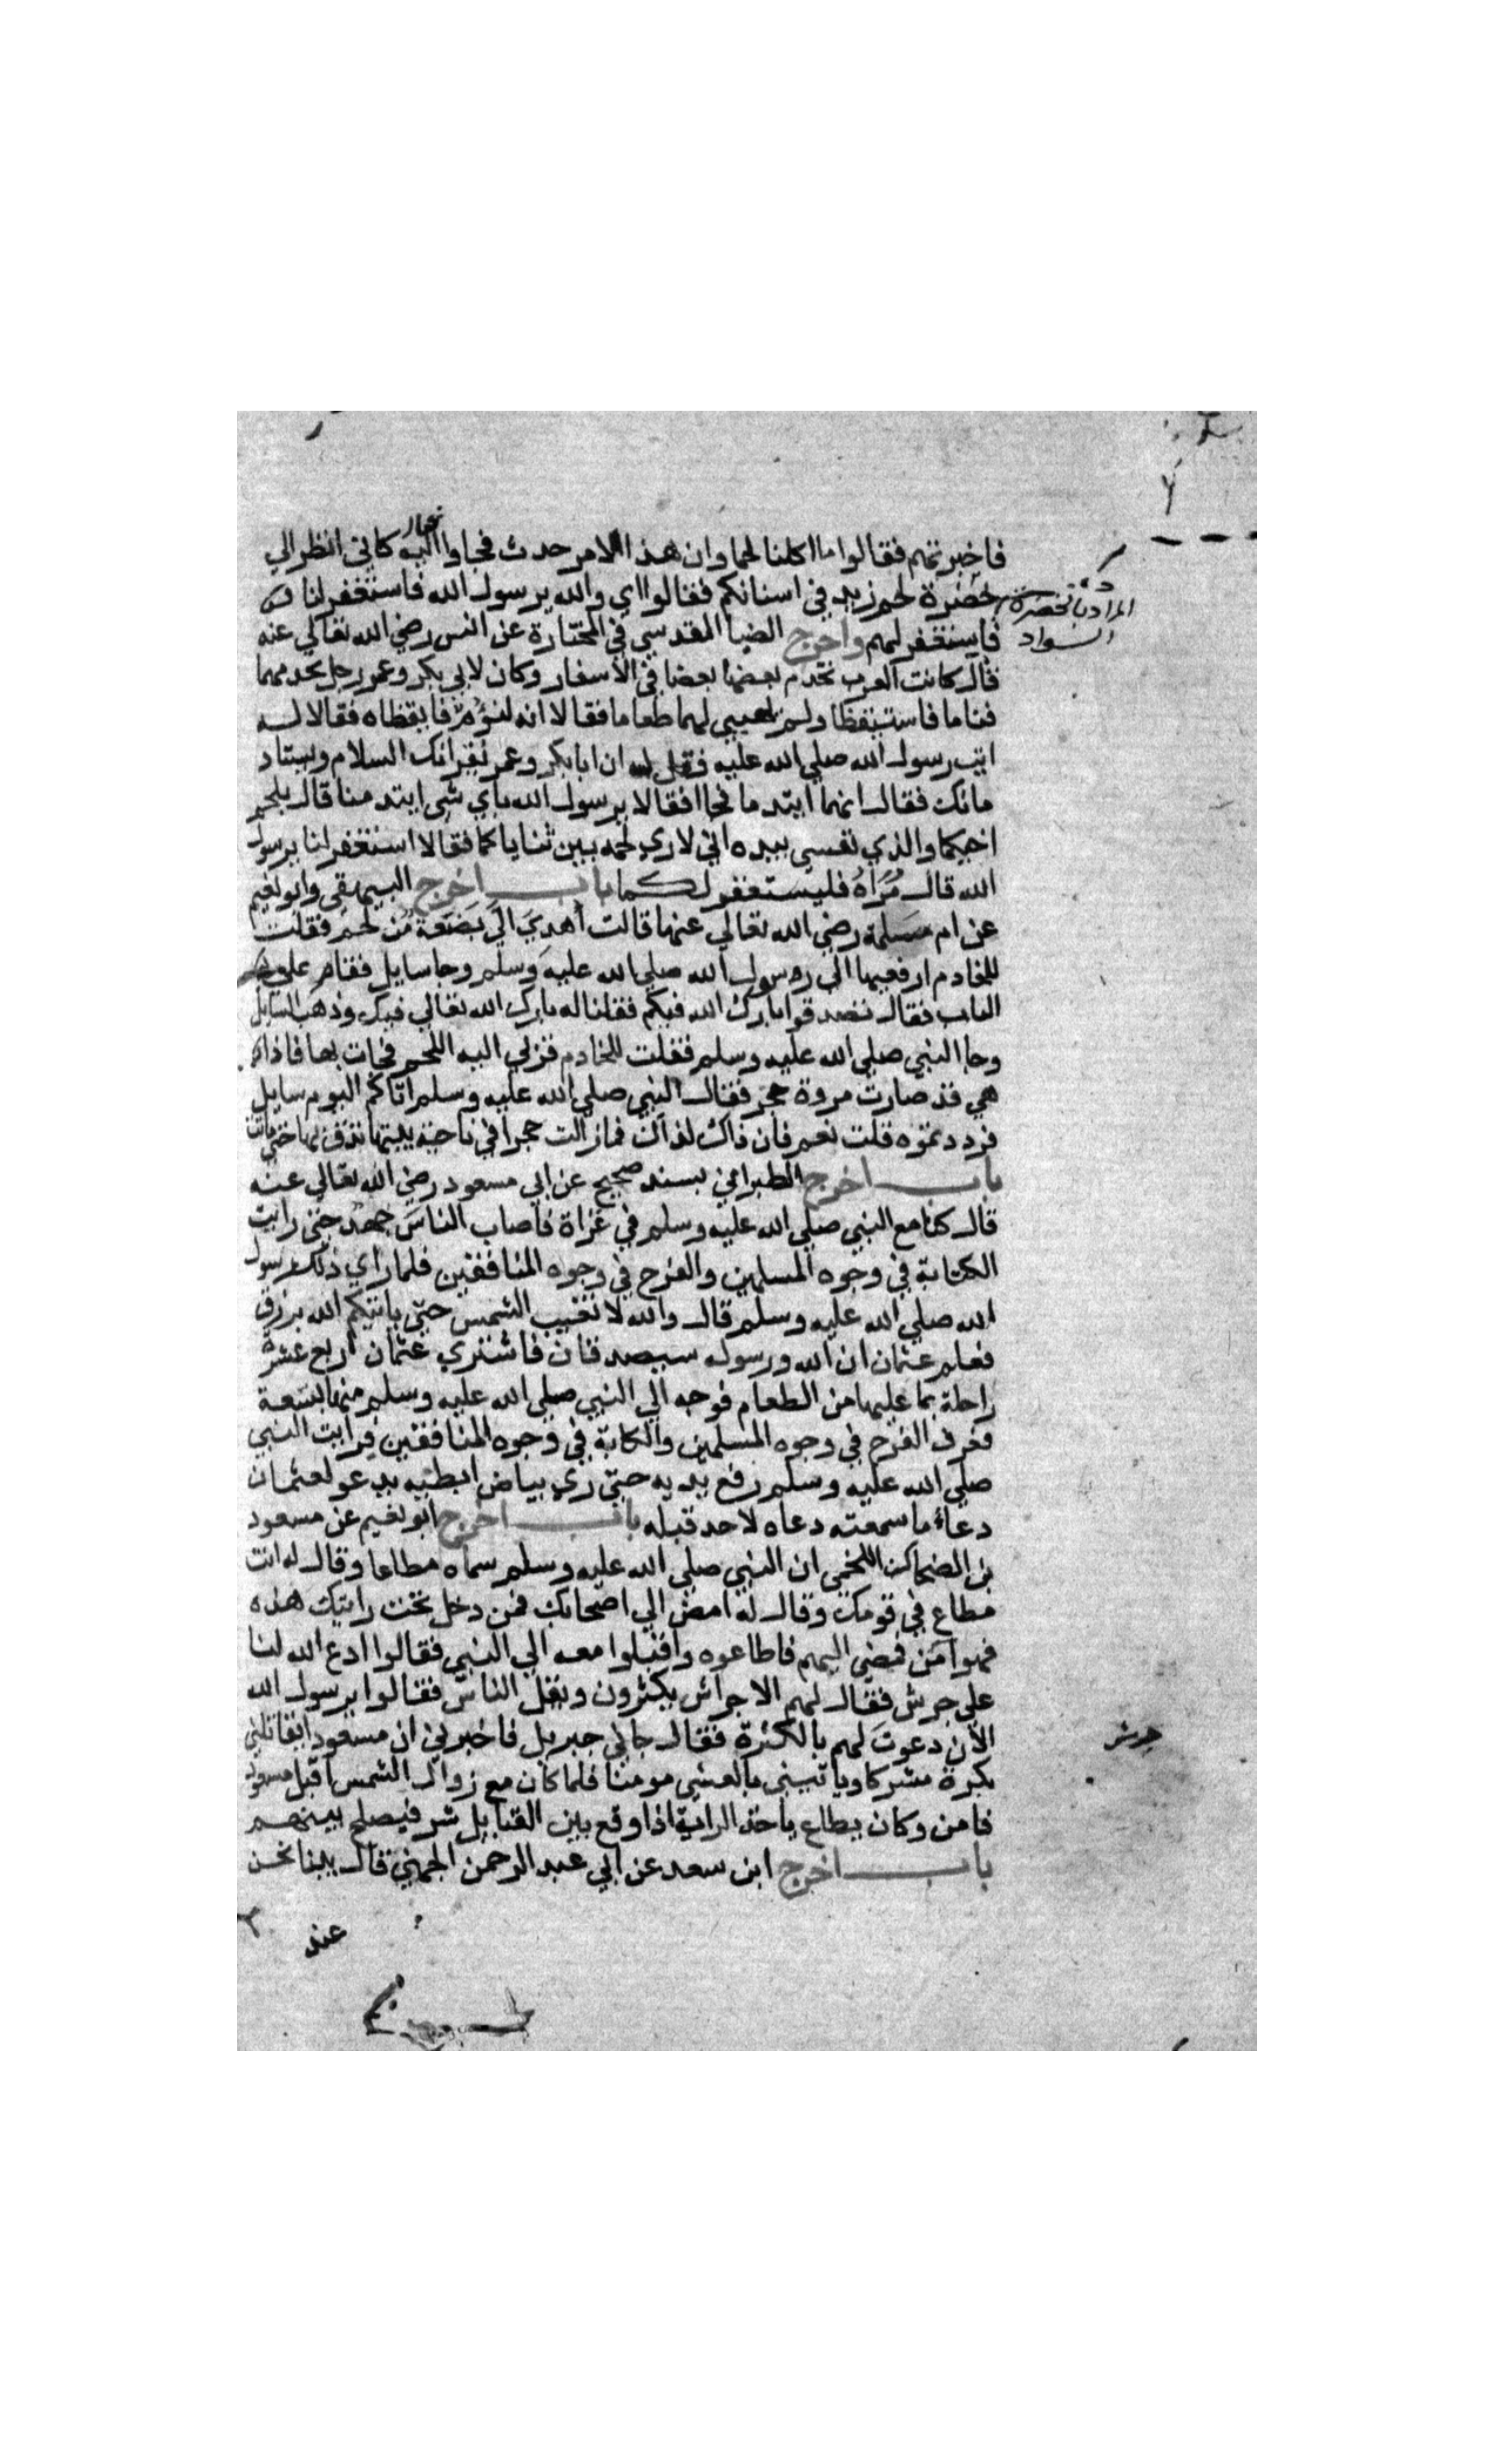 فاخبرتهم فقالوا ما اكلنا لحما وان هذا الامر حدث فجاوا اليه فقال كاني انظر الي
خضرة لحم زيد في اسنانكم فقالوا اي والله يرسول الله فاستغفر لنا
المراد بالخضرة
السواد
فاستغفر لهم واخرج الضيا المقدسي في المختارة عن انس رضي الله تعالي عنه
قال كانت العرب تخدم بعضها بعضا في الاسفار وكان لابي بكر وعمر رجل يخدمهما
فناما فاستيقظا ولم يهيي لهما طعاما فقالا انه لنؤم فايقظاه فقالا له
ايت رسول الله صلي الله عليه فقل له ان ابا بكر وعمر يقرانك السلام ويستاد
مانك فقال انهما ايتدما فجاا فقالا يرسول الله باي شي ايتدمنا قال بلحم
اخيكما والذي نفسي بيده اني لاري لحمه بين ثناياكما فقالا استغفر لنا يرسول
الله قال مراه فليستغفر لكما باب اخرج البيهقي وابو نعيم
عن ام سلمة رضي الله تعالي عنها قالت اهدي الي بضعة من لحم فقلت
للخادم ارفعيها الي رسول الله صلي الله عليه وسلم وجا سايل فقام علي
الباب فقال تصدقوا بارك الله فيكم فقلنا له بارك الله تعالي فيك وذهب السايل
وجا النبي صلي الله عليه وسلم فقلت للخادم قربي اليه اللحم فجات بها فاذا
هي قد صارت مروة حجر فقال النبي صلي الله عليه وسلم اتاكم اليوم سايل
فرددتموه قلت نعم فان ذاك لذاك فما زالت حجرا في ناحية بيتها تدق بها حتي ماتت
باب اخرج الطبراني بسند صحيح عن ابي مسعود رضي الله تعالي عنه
قال كنا مع النبي صلي الله عليه وسلم في غزاة فاصاب الناس جهد حتي رايت
الكتابة في وجوه المسلمين والفرح في وجوه المنافقين فلما راي ذلك رسول
الله صلي الله عليه وسلم قال والله لا تغيب الشمس حتي ياتيكم الله برزق
فعلم عثمان ان الله ورسوله سيصدقان فاشتري عثمان اربع عشرة
راحلة بما عليها من الطعام فوجه الي النبي صلي الله عليه وسلم منها بتسعة
فعرف الفرح في وجوه المسلمين والكابة في وجوه المنافقين فرايت النبي
صلي الله عليه وسلم رفع يديه حتي ري بياض ابطيه يدعو لعثمان
دعاء ما سمعته دعاه لاحد قبله باب اخرج ابو نعيم عن مسعود
بن الضحاك اللخمي ان النبي صلي الله عليه وسلم سماه مطاعا وقال له انت
مطاع في قومك وقال له امض الي اصحابك فمن دخل تحت رايتك هذه
فهو امن فمضي اليهم فاطاعوه واقبلوا معه الي النبي فقالوا ادع الله لنا
علي جرش فقال لهم الاجراش يكثرون ويقل الناس فقالوا يرسول الله
الآن دعوت لهم بالكثرة فقال جاني جبريل فاخبرني ان مسعود يقاتلني
جرش
بكرة مشركا وياتيني بالعشي مومنا فلما كان مع زوال الشمس اقبل مسعود
فامن وكان يطاع ياخذ الراية اذا وقع بين القبايل شر فيصلح بينهم
باب اخرج ابن سعد عن ابي عبد الرحمن الجهني قال بينا نحن
عند